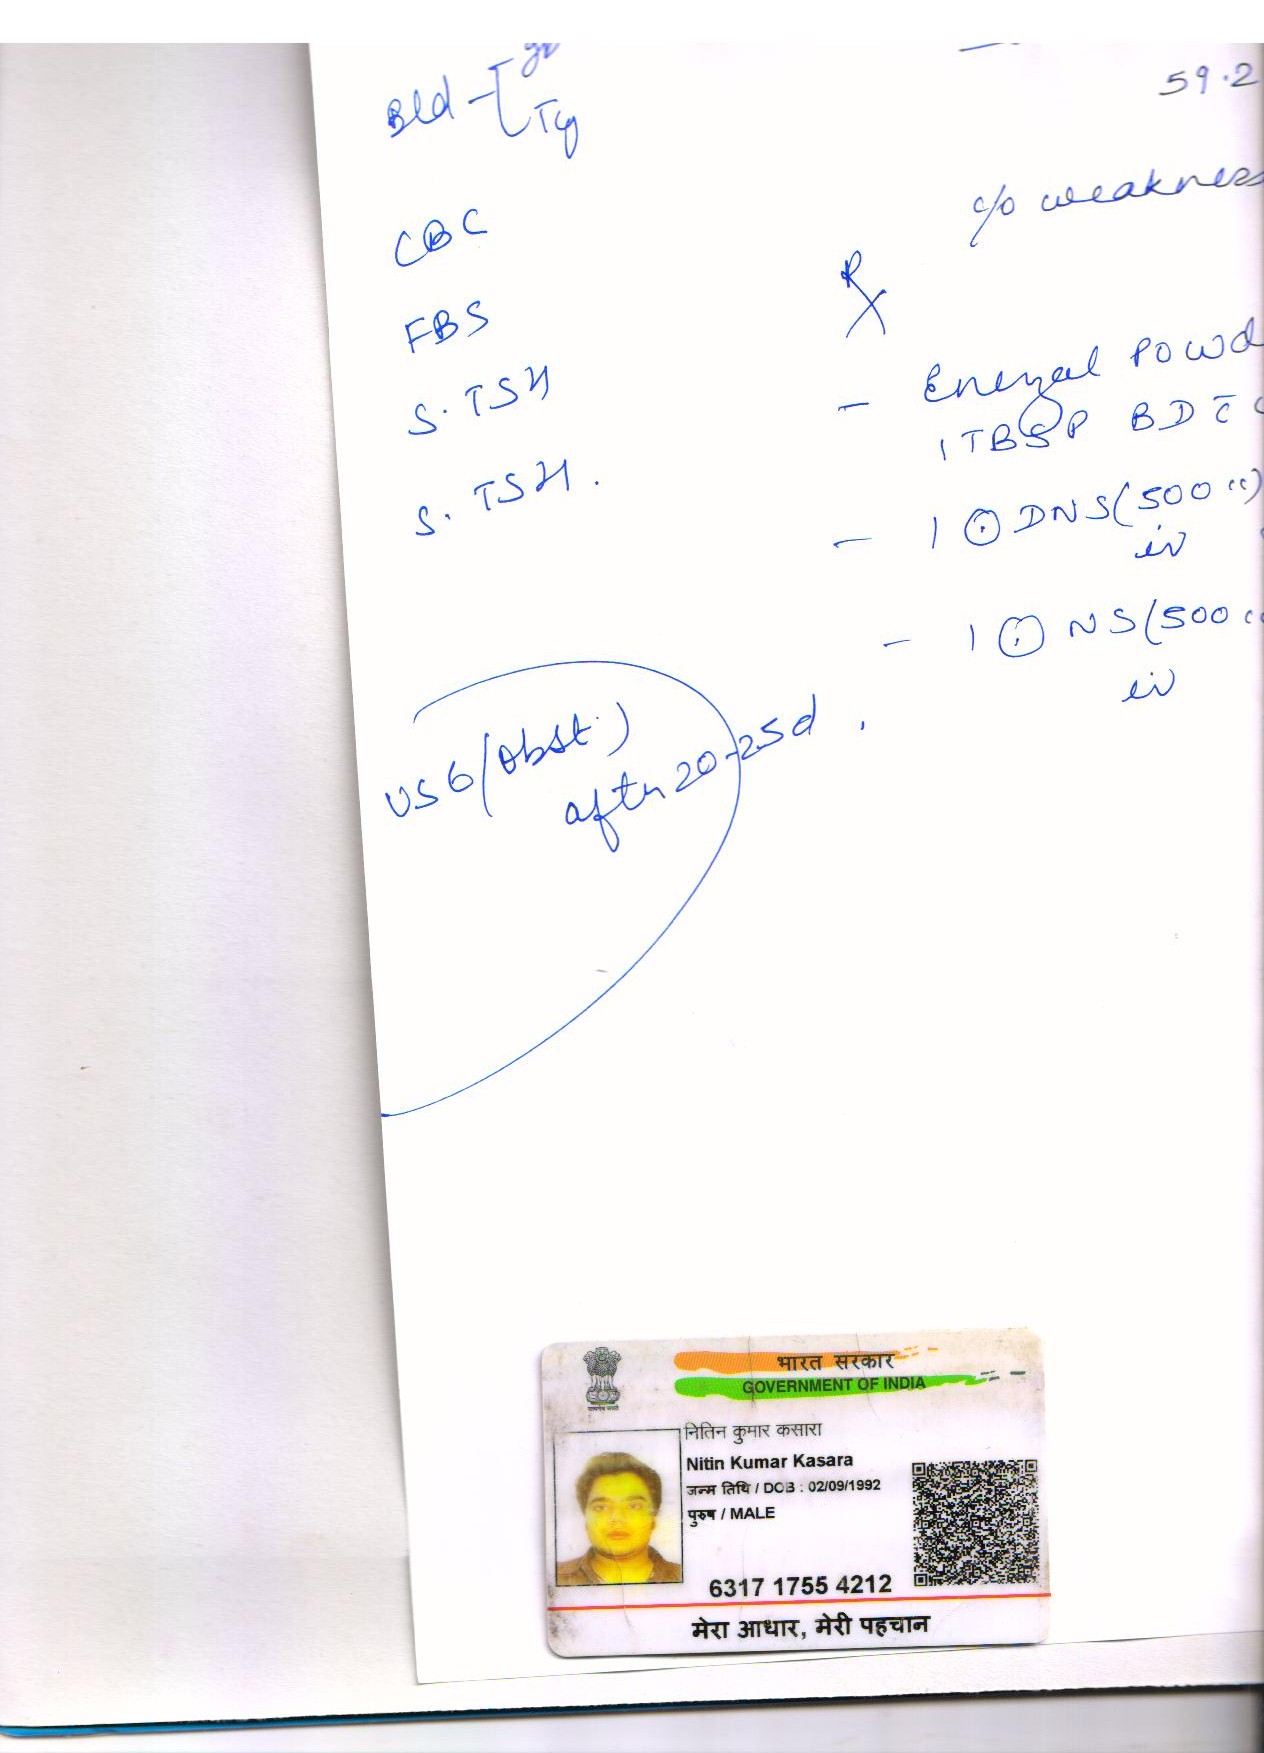 Bld - [ gr
Ty
CBC
FBS
S. TSH
S. TSH.
USG (Obst.)
after 20-25d.
59.2
c/o weakness
Rx
- Enerzal Powd
1 TBSP BD c̄
- 1 ⊙ DNS (500 cc)
iv
- 1 ⊙ NS (500 cc
iv
भारत सरकार
GOVERNMENT OF INDIA
नितिन कुमार कसारा
Nitin Kumar Kasara
जन्म तिथि / DOB : 02/09/1992
पुरुष / MALE
6317 1755 4212
मेरा आधार, मेरी पहचान